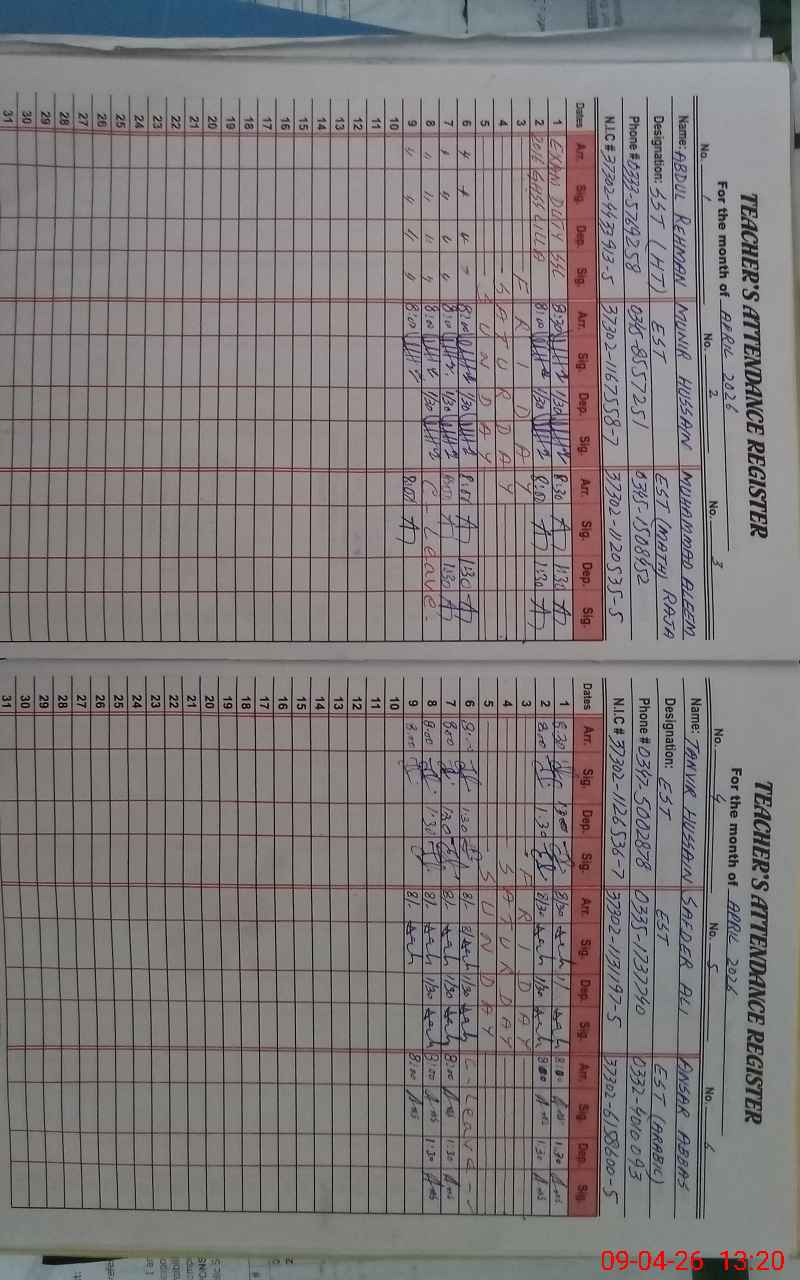 TEACHER'S ATTENDANCE REGISTER
For the month of APRIL 2026
No. 1 No. 2 No. 3
Name: ABDUL REHMAN MUNIR HUSSAIN MUHAMMAD ALEEM
Designation: SST (HT) EST EST (MATH) RAJA
Phone # 0333-5769258 0345-8557251 0345-1508952
N.I.C # 37302-4433913-5 37302-1167558-7 37302-1120535-5
Dates Arr. Sig. Dep. Sig. Arr. Sig. Dep. Sig. Arr. Sig. Dep. Sig.
1 EXAM DUTY SSC 8:30 1/30 8:30 1:30
2 8:00 1/30 8:00 1:30
3 F R I D A Y
4 S A T U R D A Y
5 S U N D A Y
6 " " " " 8:00 1/30 8:00 1:30
7 " " " " 8:00 1:30 8:00 1:30
8 " " " " 8:00 1/30 C-Leave.
9 " " " " 8:00 8:00
10
11
12
13
14
15
16
17
18
19
20
21
22
23
24
25
26
27
28
29
30
31
TEACHER'S ATTENDANCE REGISTER
For the month of APRIL 2026
No. 4 No. 5 No. 6
Name: TANVIR HUSSAIN SAFDER ALI ANSAR ABBAS
Designation: EST EST EST (ARABIC)
Phone # 0347-5002878 0335-1737740 0332-4010093
N.I.C # 37302-1126536-7 37302-1131197-5 37302-6158600-5
Dates Arr. Sig. Dep. Sig. Arr. Sig. Dep. Sig. Arr. Sig. Dep. Sig.
1 8:30 8/30 8:00 1:30
2 8:00 1:30 8/30 1/30 8:00 1:30
3 F R I D A Y
4 S A T U R D A Y
5 S U N D A Y
6 8:00 1:30 8/- 1/30 C-Leave
7 8:00 1:30 8/- 1/30 8:00 1:30
8 8:00 1:30 8/- 1/30 8:00 1:30
9 8:00 8/- 8:00
10
11
12
13
14
15
16
17
18
19
20
21
22
23
24
25
26
27
28
29
30
31
09-04-26 13:20